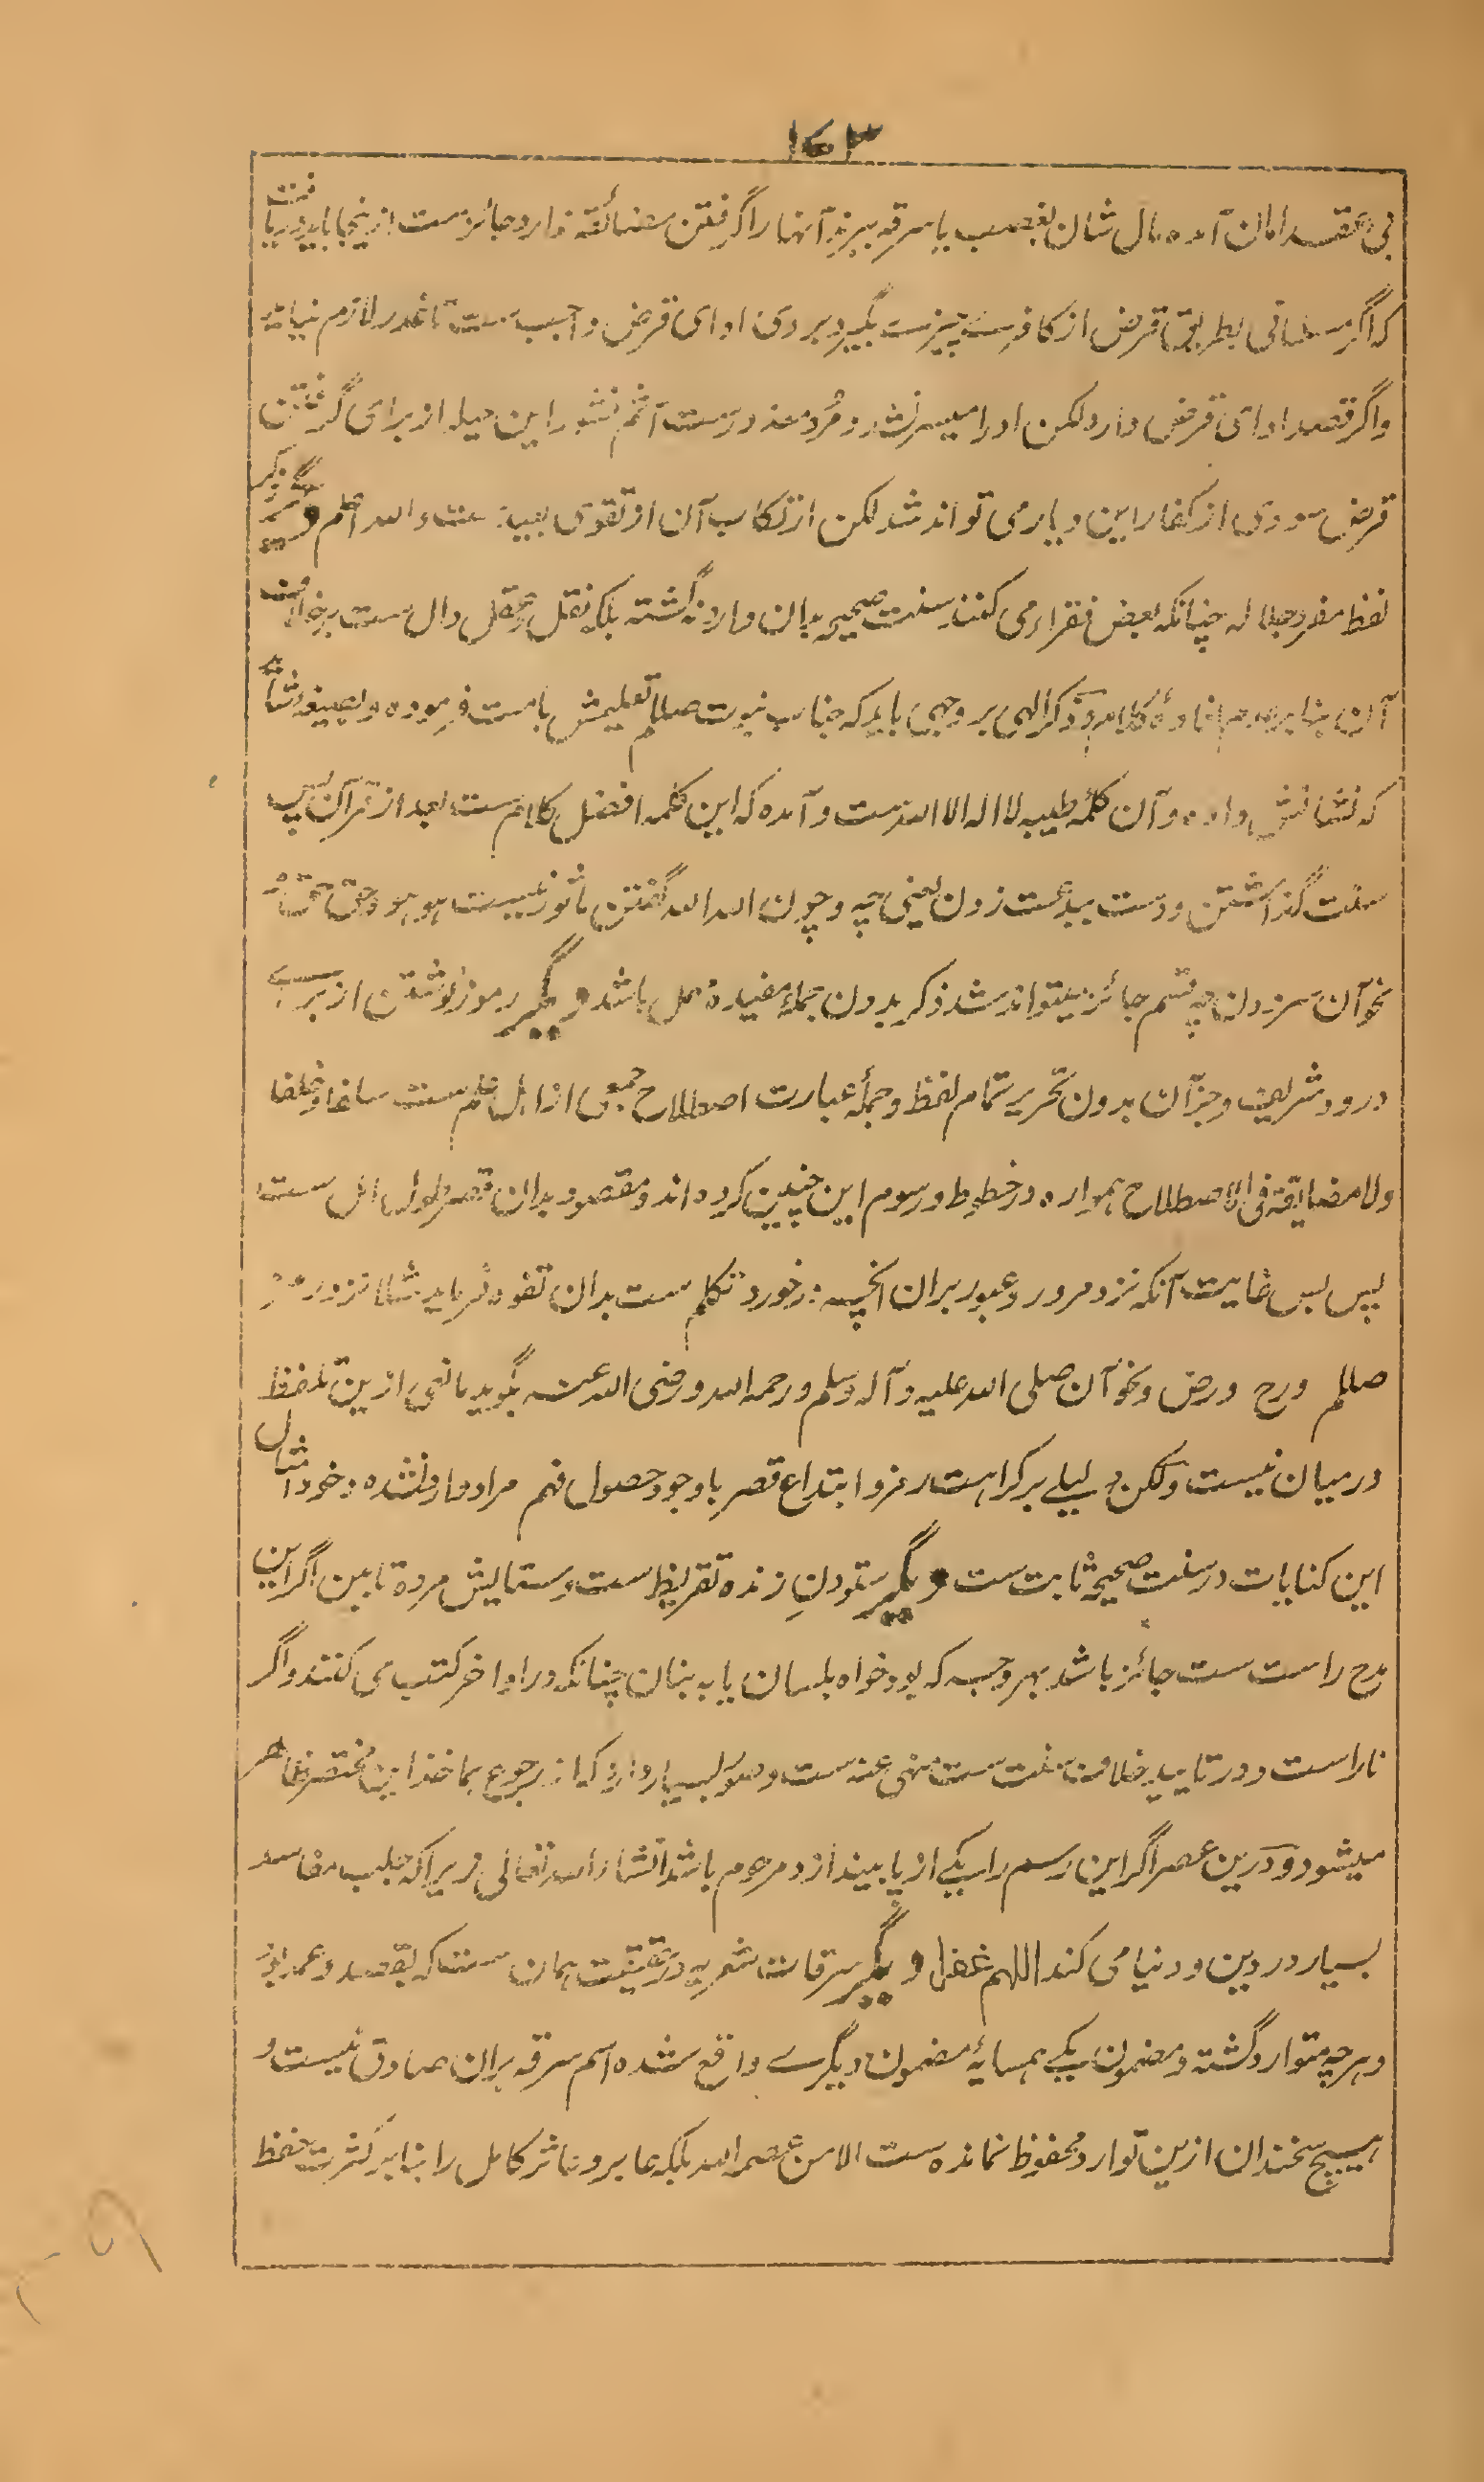 ۱۶۳
بی عقد امان آمده مال شان بغصب یا سرقه ببرند آنها را گرفتن مضائقه ندارد و جائزست ازینجا باید دریافت
که اگر مسلمانی بطریق قرض از کافر چیزی بگیرد بر وی ادای قرض واجب ست تا غدر لازم نیاید
واگر قصد ادای قرض دارد لکن او را میسر نشد و مُرد معذورست آثم نشود این حیله از برای گرفتن
قرض سودی از کفار این دیار می تواند شد لکن ارتکاب آن از تقوی بعید ست والله اعلم و دیگر ذکر
لفظ مفرد جلاله چنانکه بعض فقراء می کنند سنت صحیحه بدان وارد نگشته بلکه نقل و عقل دال ست بر خلاف
آن بنا بر عدم افادهٔ کلام و ذکر الهی بر وجهی باید که جناب نبوت صللم تعلیمش بامت فرموده و بصیغهٔ
که نشانش داده و آن کلمهٔ طیبه لا اله الا الله ست و آمده که این کلمه افضل کلام ست بعد از قرآن پس
سنت گذاشتن و دست ببدعت زدن یعنی چه و چون الله الله گفتن ماثور نیست هو هو و حق حق و
نحو آن سر زدن چه قسم جائز میتواند شد ذکر بدون جملهٔ مفیده مهمل باشد دیگر رموز نوشتن از برای
درود شریف و جز آن بدون تحریر تمام لفظ و جملهٔ عبارت اصطلاح جمعی از اهل علم ست سلفا و خلفا
ولا مضایقة فی الاصطلاح همواره در خطوط و رسوم این چنین کرده اند و مقصود بدان قصر طول امل ست
پس بس غایت آنکه نزد مرور و عبور بران آنچه درخورد تکلم ست بدان تفوه فرماید مثلا نزد رمز
صللم ورح ورض و نحو آن صلی الله علیه و آله وسلم و رحمه الله و رضی الله عنه بگوید مانعی ازین تلفظ
در میان نیست ولکن دلیلے بر کراهت رمز و ابتداع قصر باوجود حصول فهم مراد وارد نشده و خود امثال
این کنایات در سنت صحیحه ثابت ست دیگر ستودنِ زنده تقریظ ست و ستایش مرده تابین اگر این
مدح راست ست جائز باشد بهر وجه که بود خواه بلسان یا به بنان چنانکه در اواخر کتب می کنند و اگر
ناراست و در تایید خلاف سنت ست منهی عنه ست و صور بسیار دارد که از رجوع بماخذ این مختصر ظاهر
میشود و درین عصر اگر این رسم را یکے از پا بیندازد مرحوم باشد انشاء الله تعالی زیرا که جلب مفاسد
بسیار در دین و دنیا می کند اللهم غفرا دیگر سرقات شعریه در حقیقت همان ست که بقصد و عمد بود
و هرچه متوارد گشته و مضمون یکے همسایهٔ مضمون دیگرے واقع شده اسم سرقه بران صادق نیست و
هیچ سخندان ازین توارد محفوظ نمانده ست الا من عصمه الله بلکه عابر و ناثر کامل را بنا بر کثرت حفظ